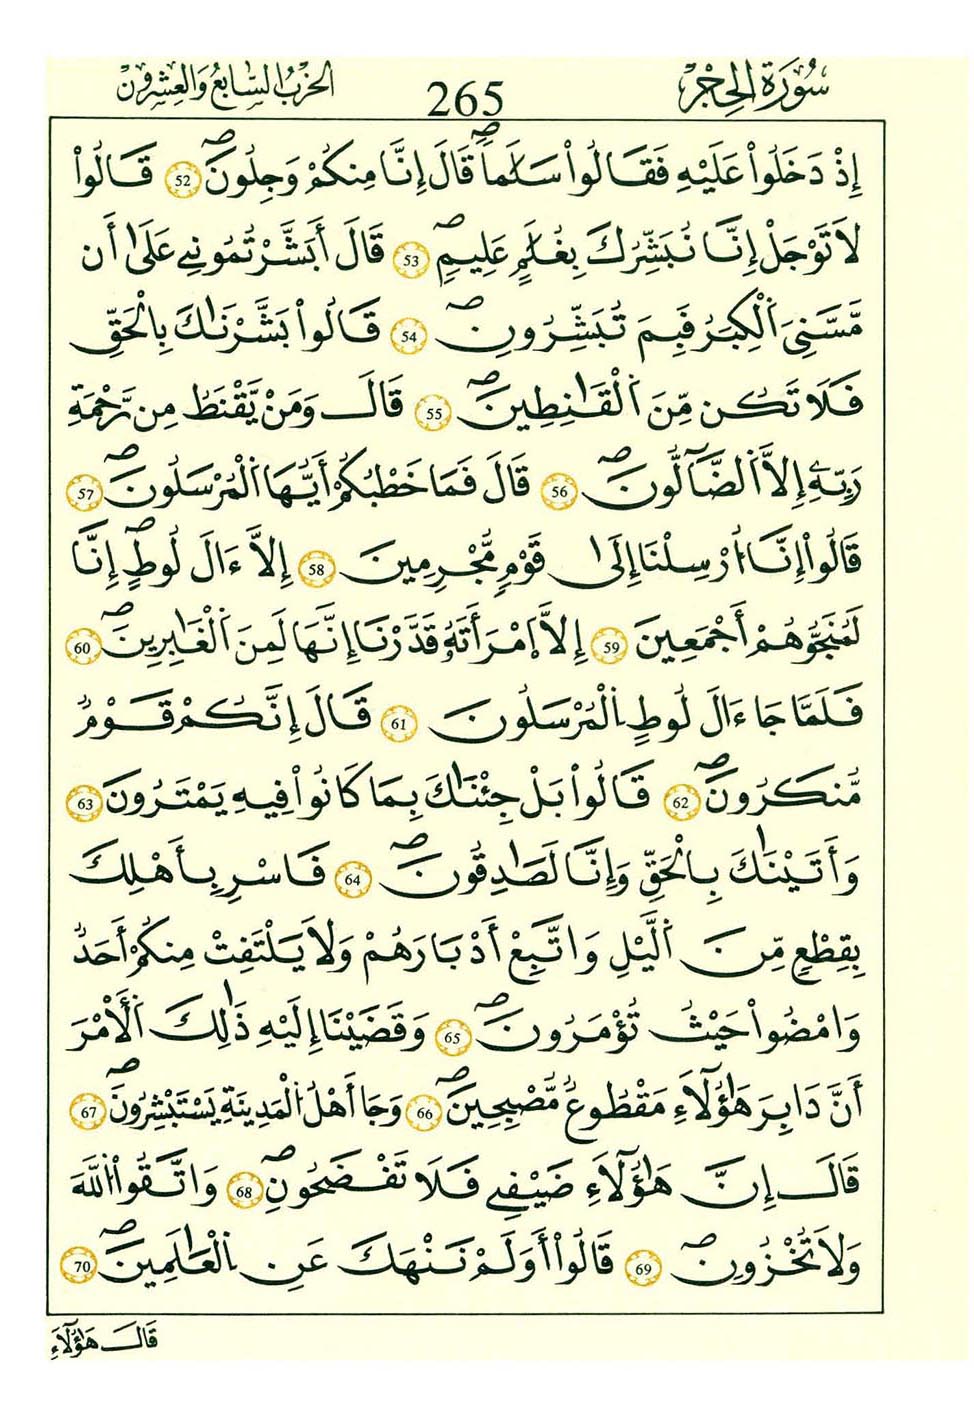 سُورَةُ الحِجْر 265 الحزب السابع والعشرون
إِذْ دَخَلُواْ عَلَيْهِ فَقَالُواْ سَلَٰماً قَالَ إِنَّا مِنكُمْ وَجِلُونَ 52 قَالُواْ
لَا تَوْجَلْ إِنَّا نُبَشِّرُكَ بِغُلَٰمٍ عَلِيمٍ 53 قَالَ أَبَشَّرْتُمُونِے عَلَىٰ أَن
مَّسَّنِيَ اَ۬لْكِبَرُ فَبِمَ تُبَشِّرُونِ 54 قَالُواْ بَشَّرْنَٰكَ بِالْحَقِّ
فَلَا تَكُن مِّنَ اَ۬لْقَٰنِطِينَ 55 قَالَ وَمَنْ يَّقْنَطُ مِن رَّحْمَةِ
رَبِّهِۦٓ إِلَّا اَ۬لضَّآلُّونَ 56 قَالَ فَمَا خَطْبُكُمُۥٓ أَيُّهَا اَ۬لْمُرْسَلُونَ 57
قَالُواْ إِنَّا أُرْسِلْنَا إِلَىٰ قَوْمٍ مُّجْرِمِينَ 58 إِلَّا ءَالَ لُوطٍ إِنَّا
لَمُنَجُّوهُمْ أَجْمَعِينَ 59 إِلَّا اَمْرَأَتَهُۥ قَدَّرْنَا إِنَّهَا لَمِنَ اَ۬لْغَٰبِرِينَ 60
فَلَمَّا جَا ءَالَ لُوطٍ اِ۬لْمُرْسَلُونَ 61 قَالَ إِنَّكُمْ قَوْمٌ
مُّنكَرُونَ 62 قَالُواْ بَلْ جِئْنَٰكَ بِمَا كَانُواْ فِيهِ يَمْتَرُونَ 63
وَأَتَيْنَٰكَ بِالْحَقِّ وَإِنَّا لَصَٰدِقُونَ 64 فَاسْرِ بِأَهْلِكَ
بِقِطْعٍ مِّنَ اَ۬لَّيْلِ وَاتَّبِعْ أَدْبَارَهُمْ وَلَا يَلْتَفِتْ مِنكُمُۥٓ أَحَدٌ
وَامْضُواْ حَيْثُ تُؤْمَرُونَ 65 وَقَضَيْنَا إِلَيْهِ ذَٰلِكَ اَ۬لْأَمْرَ
أَنَّ دَابِرَ هَٰؤُلَآءِ مَقْطُوعٌ مُّصْبِحِينَ 66 وَجَا أَهْلُ اُ۬لْمَدِينَةِ يَسْتَبْشِرُونَ 67
قَالَ إِنَّ هَٰؤُلَآءِ ضَيْفِے فَلَا تَفْضَحُونِ 68 وَاتَّقُواْ اُ۬للَّهَ
وَلَا تُخْزُونِ 69 قَالُواْ أَوَلَمْ نَنْهَكَ عَنِ اِ۬لْعَٰلَمِينَ 70
قَالَ هَٰؤُلَآءِ